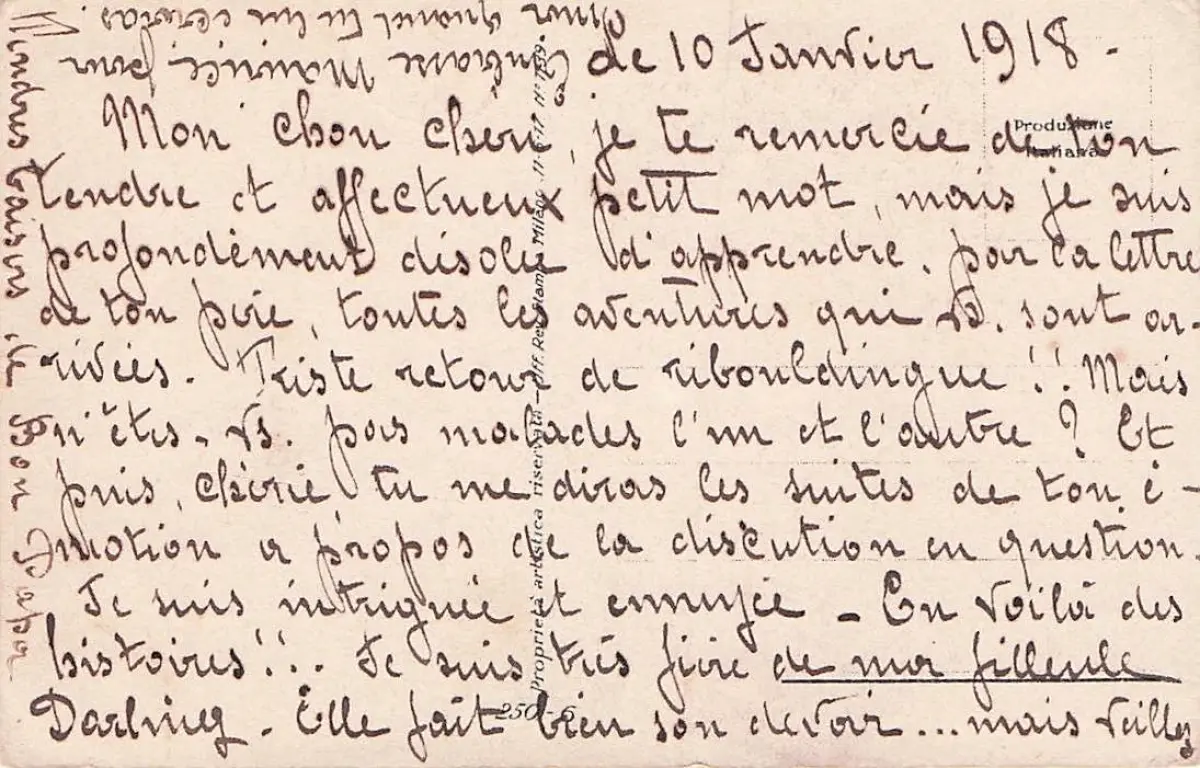 de 10 Janvier 1918 -
Mon chou chéri, je te remercie de ton
tendre et affectueux petit mot, mais je suis
profondément désolée d'apprendre, par la lettre
de ton père, toutes les aventures qui vs. sont ar-
rivées. Triste retour de ribouldingue !! Mais
n'êtes-vs. pas malades l'un et l'autre ? Et
puis, chérie, tu me diras les suites de ton é-
motion a propos de la discution en question.
Je suis intriguée et ennuyée - En voilà des
histoires !!.. Je suis très fière de ma filleule
Darling. Elle fait bien son devoir... mais veillez
Tendres baisers à Bon Papa
Embrasse Mainée pour
nous quand tu lui écriras.
Produzione
Italiana
Proprietà artistica riservata - Milano
250-6